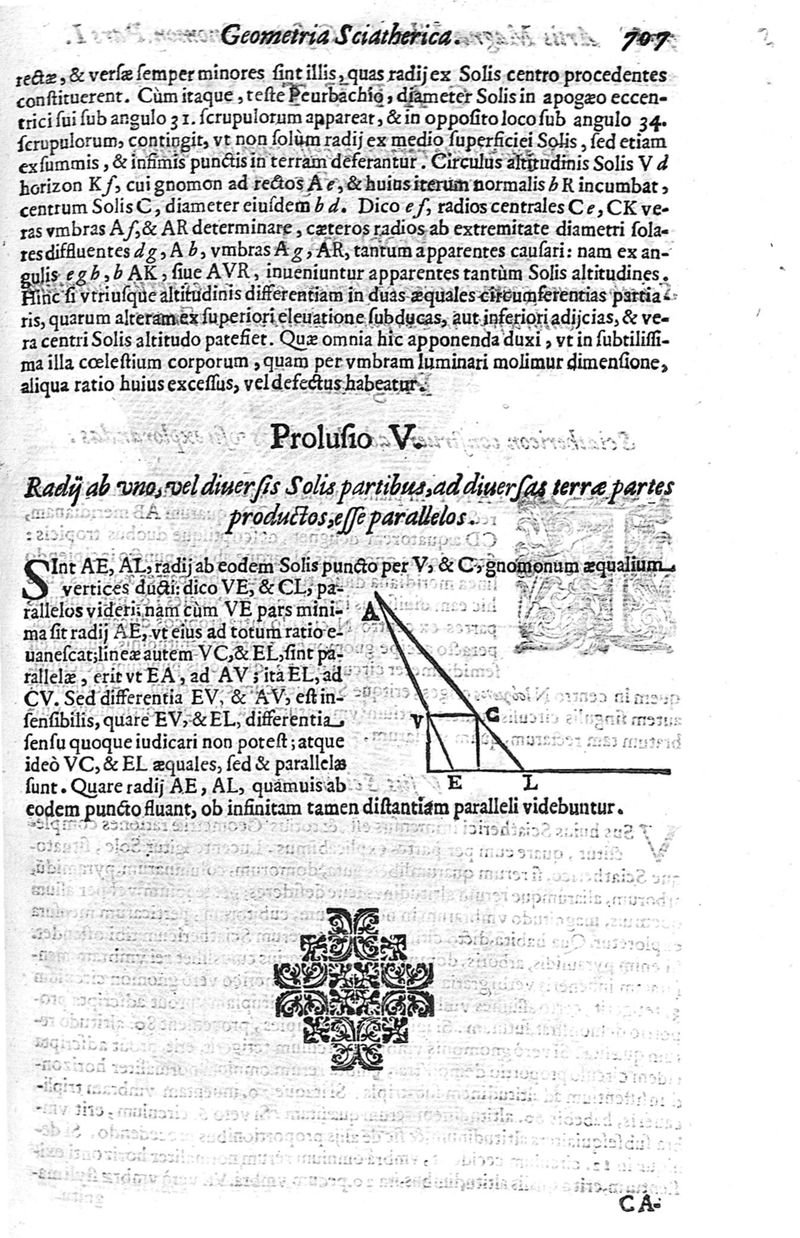 Geometria Sciatherica. 707
rectæ, & versæ semper minores sint illis, quas radij ex Solis centro procedentes
constituerent. Cùm itaque, teste Peurbachio, diameter Solis in apogæo eccen-
trici sui sub angulo 31. scrupulorum appareat, & in opposito loco sub angulo 34.
scrupulorum, contingit, vt non solùm radij ex medio superficiei Solis, sed etiam
ex summis, & infimis punctis in terram deferantur. Circulus altitudinis Solis V d
horizon K f, cui gnomon ad rectos A e, & huius iterum normalis b R incumbat,
centrum Solis C, diameter eiusdem b d. Dico e f, radios centrales C e, CK ve-
ras vmbras A f, & AR determinare, cæteros radios ab extremitate diametri sola-
res diffluentes d g, A b, vmbras A g, AR, tantum apparentes causari: nam ex an-
gulis e g b, b AK, siue AVR, inueniuntur apparentes tantùm Solis altitudines.
Hinc si vtriusque altitudinis differentiam in duas æquales circumferentias partia-
ris, quarum alteram ex superiori eleuatione subducas, aut inferiori adijcias, & ve-
ra centri Solis altitudo patefiet. Quæ omnia hic apponenda duxi, vt in subtilissi-
ma illa cœlestium corporum, quam per vmbram luminari molimur dimensione,
aliqua ratio huius excessus, vel defectus habeatur.
Prolusio V.
Radij ab vno, vel diuersis Solis partibus, ad diuersas terræ partes
productos, esse parallelos.
SInt AE, AL, radij ab eodem Solis puncto per V, & C, gnomonum æqualium
vertices ducti: dico VE, & CL, pa-
rallelos videri; nam cùm VE pars mini-
ma sit radij AE, vt eius ad totum ratio e-
uanescat; lineæ autem VC, & EL, sint pa-
rallelæ, erit vt EA, ad AV; ità EL, ad
CV. Sed differentia EV, & AV, est in-
sensibilis, quare EV, & EL, differentia
sensu quoque iudicari non potest; atque
ideò VC, & EL æquales, sed & parallelæ
sunt. Quare radij AE, AL, quamuis ab
eodem puncto fluant, ob infinitam tamen distantiam paralleli videbuntur.
A
V C
E L
CA-